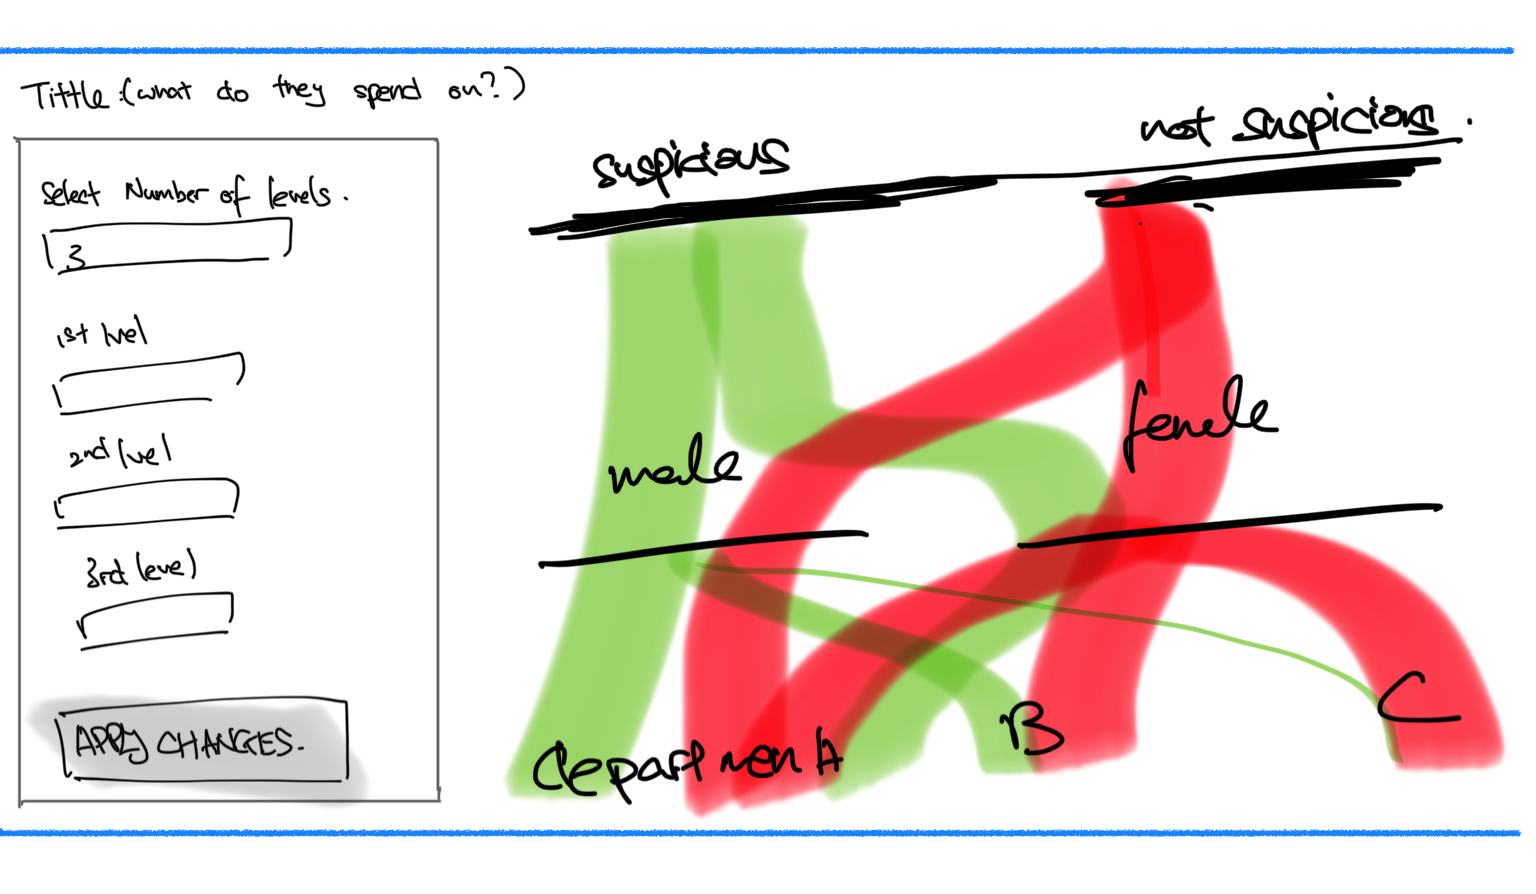 Tittle: (what do they spend on?)
Select Number of levels.
3
1st lvel
2nd lvel
3rd level
APPLY CHANGES.
suspicious
not suspicious.
male
female
department A
B
C